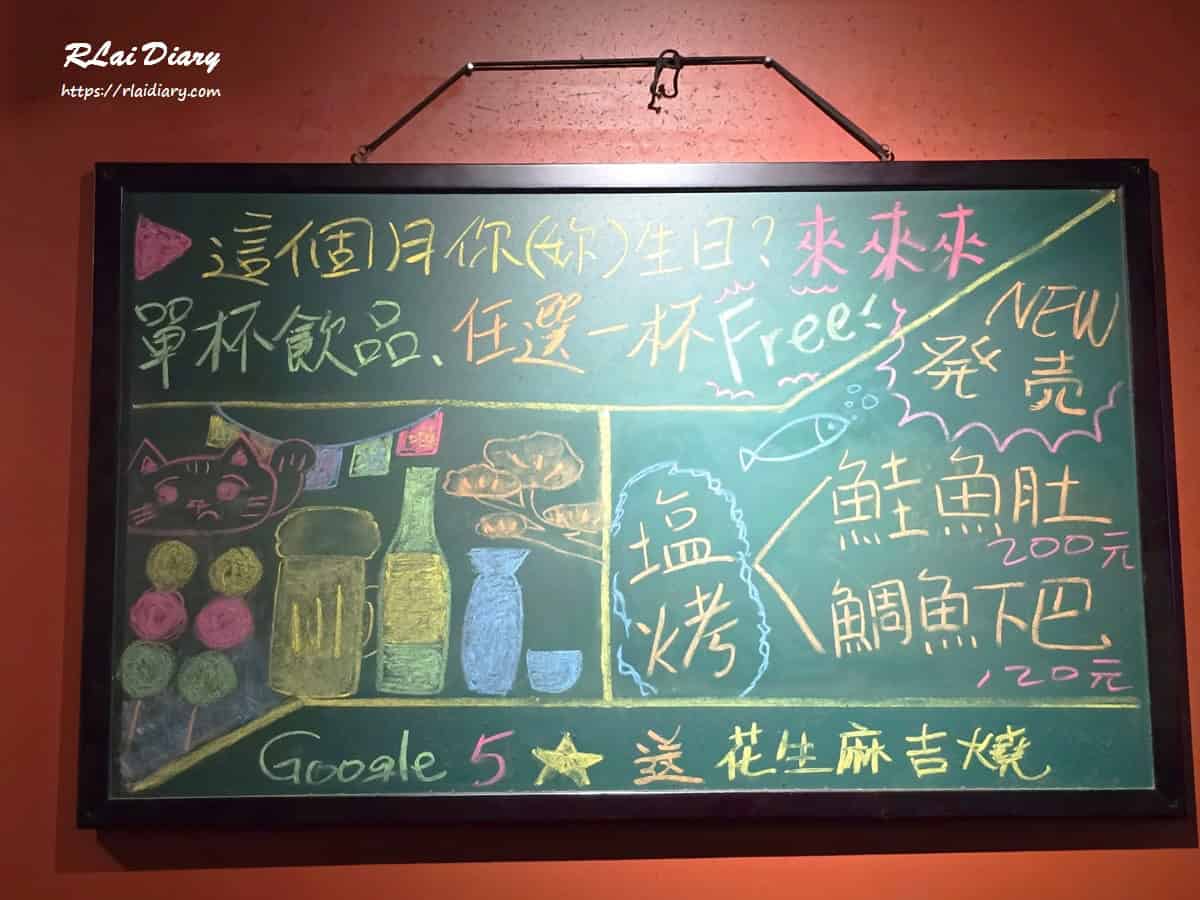 RLai Diary
https://rlaidiary.com
這個月你(妳)生日?來來來
單杯飲品、任選一杯Free!
NEW
発売
塩烤
鮭魚肚
200元
鯛魚下巴
120元
Google 5 ★ 送 花生麻吉燒